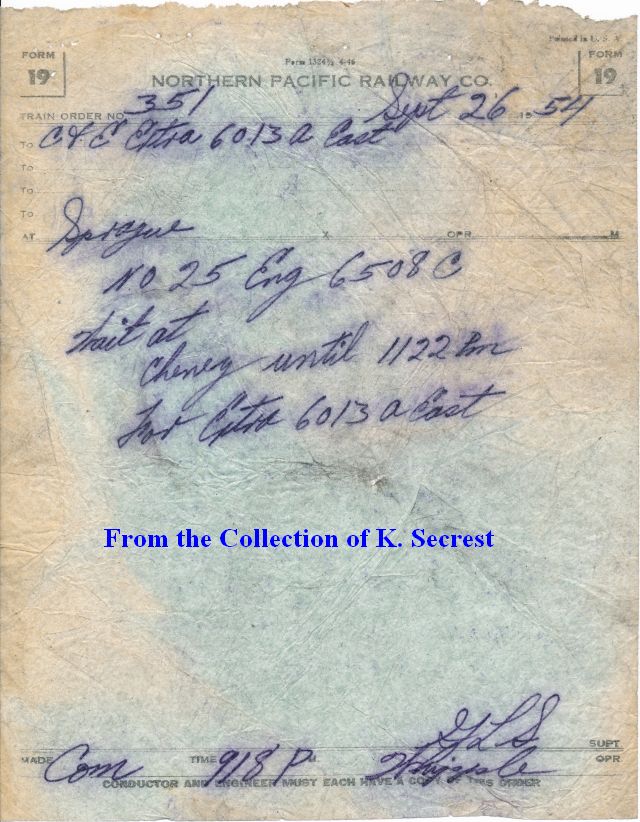 Printed in U. S. A.
FORM 19
Form 1324½ 4-46
FORM 19
NORTHERN PACIFIC RAILWAY CO.
TRAIN ORDER NO. 351 Sept 26 19 54
To C&E Extra 6013 A East
To
To
To
AT Sprague X OPR. M
No 25 Eng 6508 C
Wait at
Cheney until 1122 Pm
For Extra 6013 A East
From the Collection of K. Secrest
G L S SUPT
MADE Com TIME 918 P M. Whipple OPR
CONDUCTOR AND ENGINEER MUST EACH HAVE A COPY OF THIS ORDER